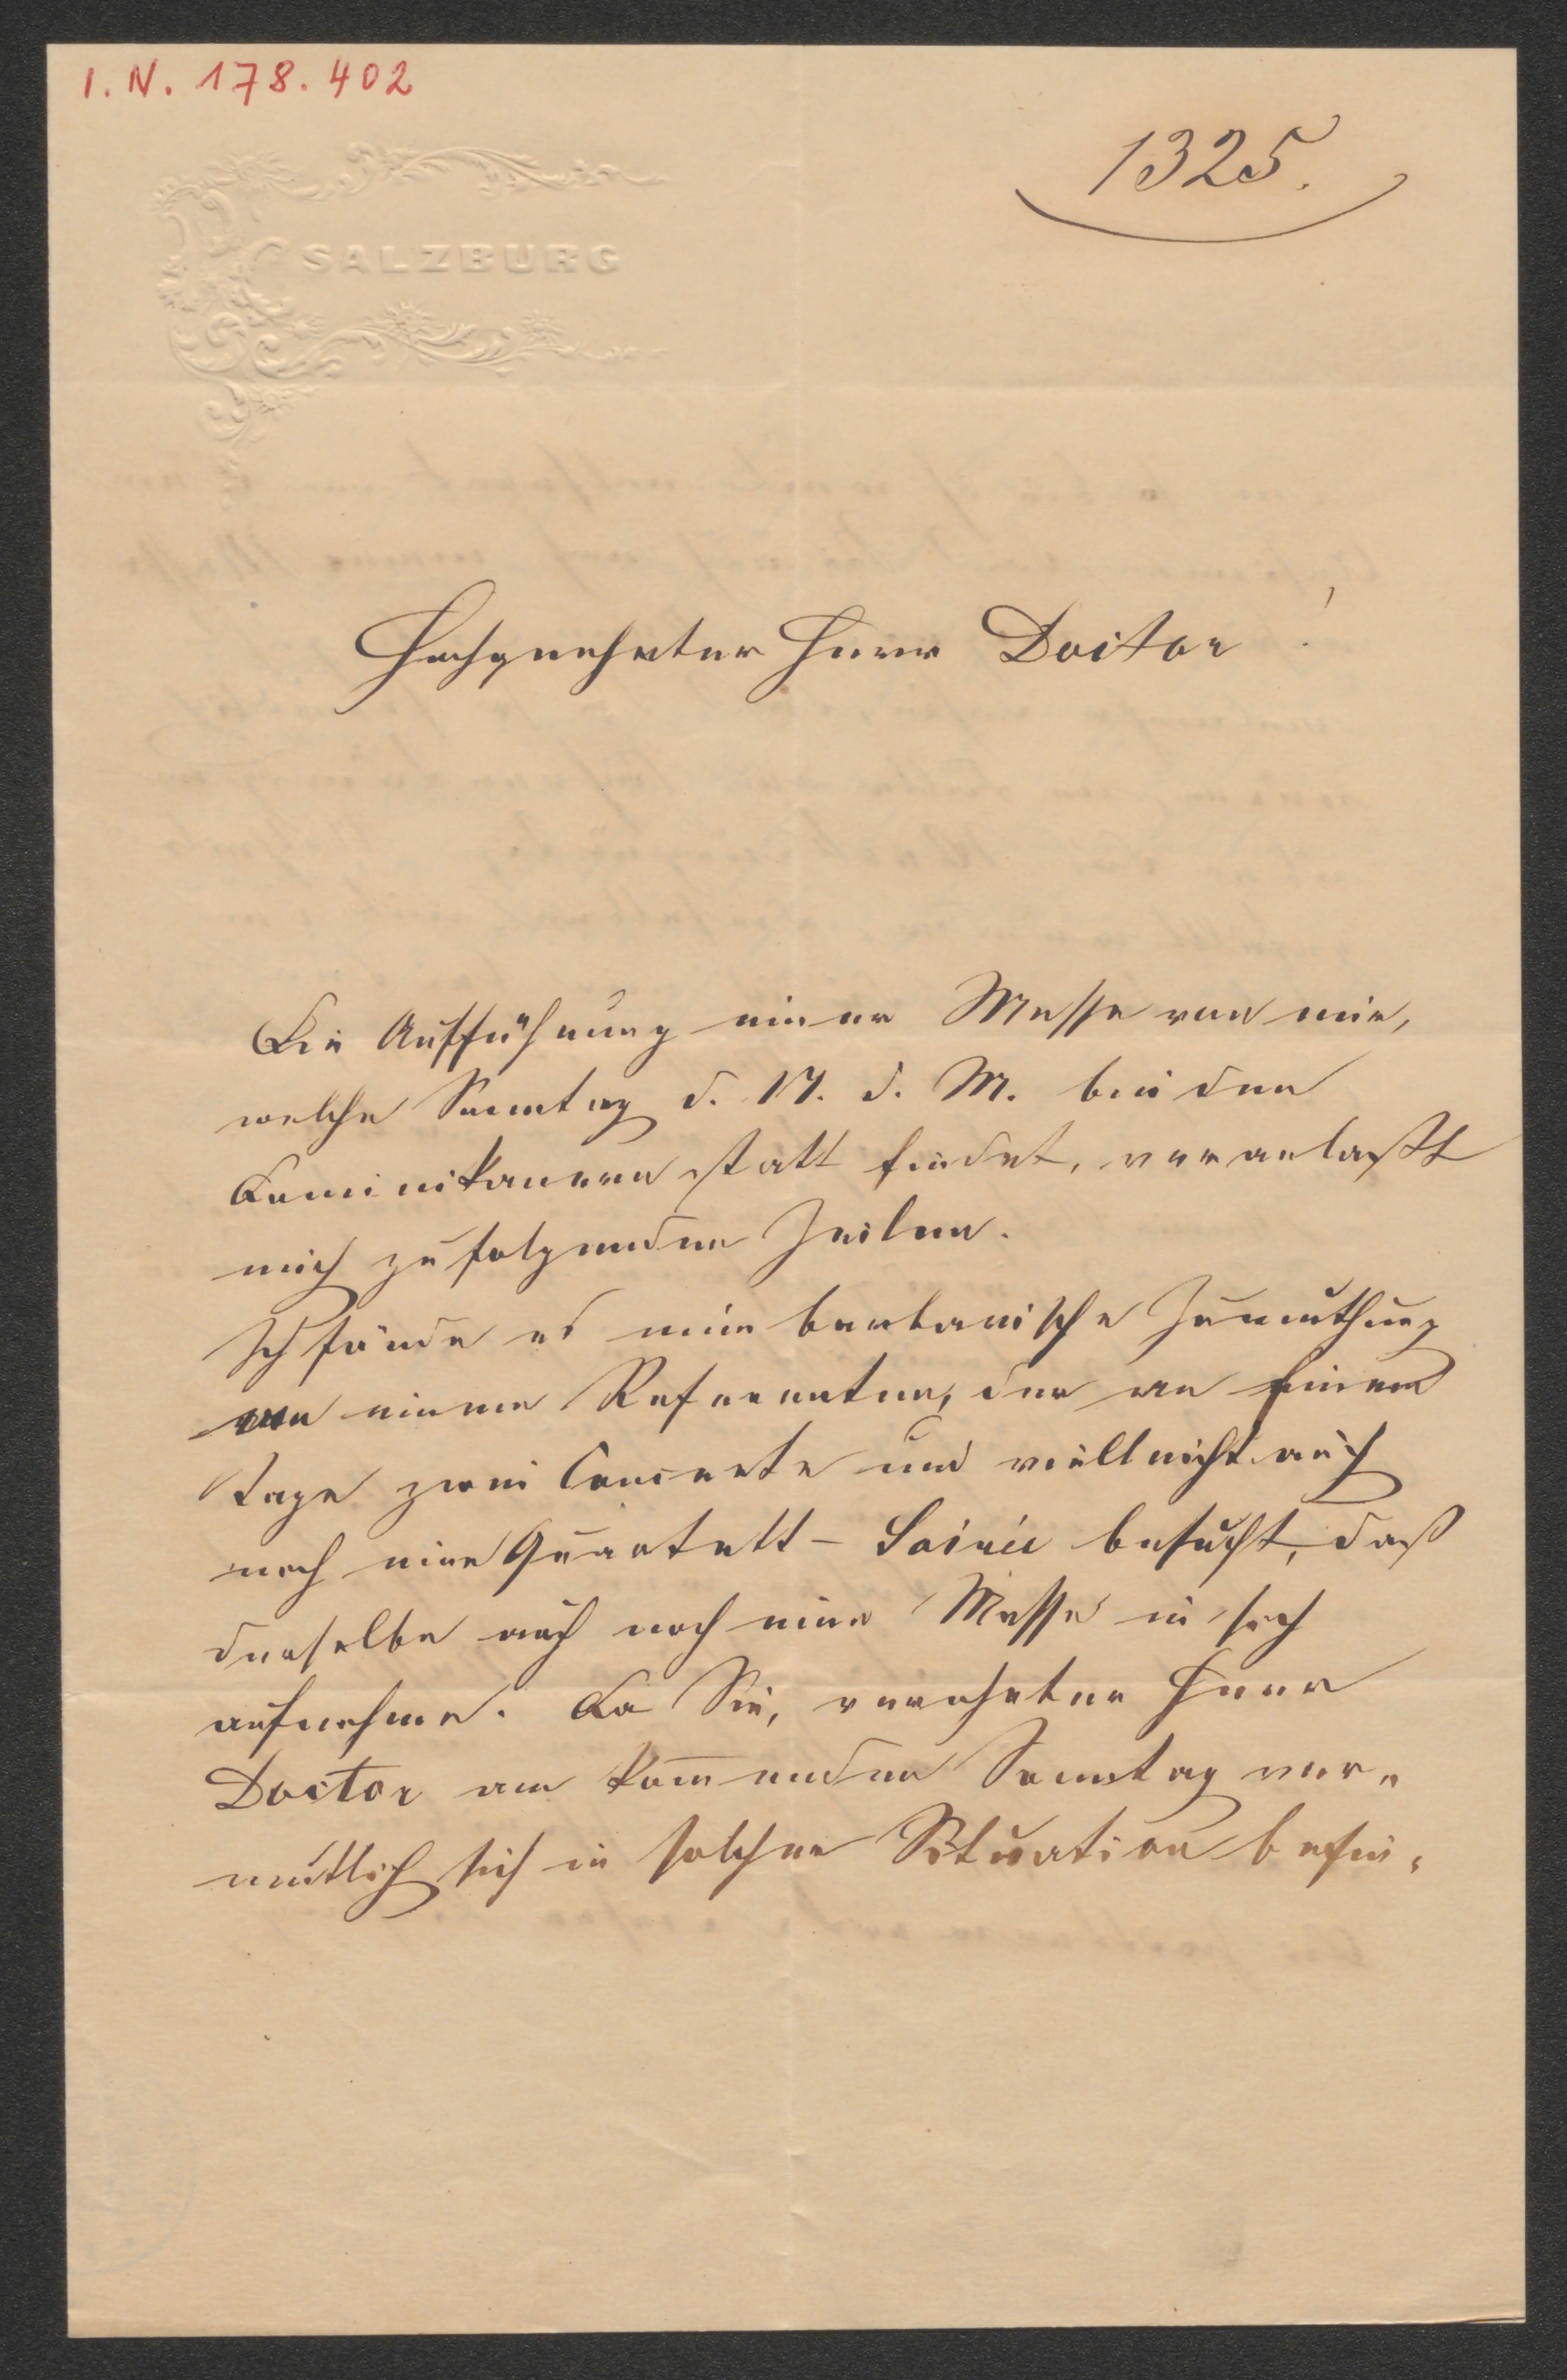 I. N. 178.402
1325.
SALZBURG
Hochgeehrter Herr Doctor!
Die Aufführung einer Messe von mir,
welche Sonntag d. 17. d. M. bei den
Dominikanern statt findet, veranlaßt
mich zu folgenden Zeilen.
Ich fände es eine barbarische Zumuthung
von einem Referenten, der an Einem
Tage zwei Concerte und vielleicht auch
noch eine Quartett-Soirée besucht, daß
derselbe auch noch eine Messe in sich
aufnehme. Da Sie, verehrter Herr
Doctor am kom̅enden Sonntag ver„
mutlich sich in solcher Situation befin„